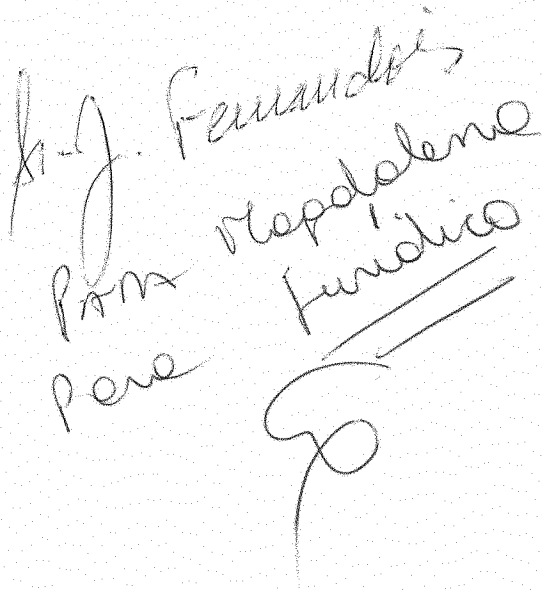 J. Fernandois
PARA Magdalena
Para Jurídico